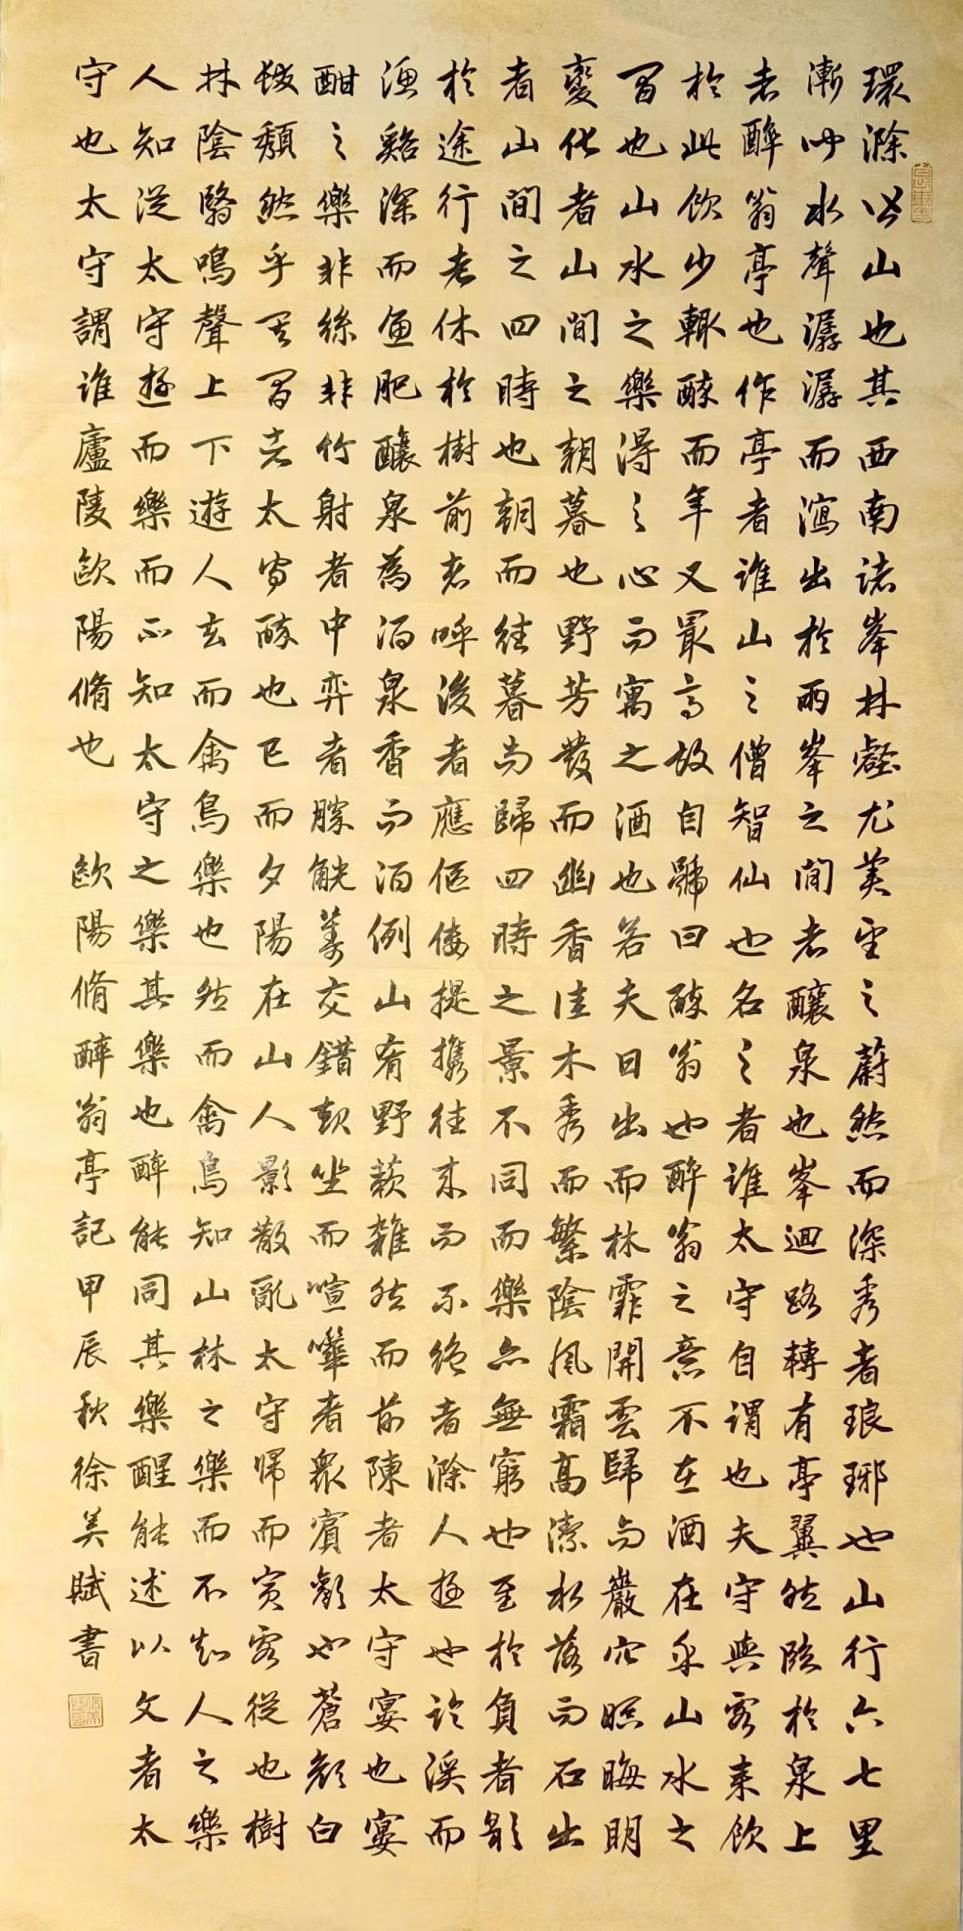 環滁皆山也其西南諸峯林壑尤美望之蔚然而深秀者琅琊也山行六七里
漸聞水聲潺潺而瀉出於兩峯之間者釀泉也峯迴路轉有亭翼然臨於泉上
者醉翁亭也作亭者誰山之僧智仙也名之者誰太守自謂也夫守與客來飲
於此飲少輒醉而年又最高故自號曰醉翁也醉翁之意不在酒在乎山水之
間也山水之樂得之心而寓之酒也若夫日出而林霏開雲歸而巖穴暝晦明
變化者山間之朝暮也野芳發而幽香佳木秀而繁陰風霜高潔水落而石出
者山間之四時也朝而往暮而歸四時之景不同而樂亦無窮也至於負者歌
於途行者休於樹前者呼後者應傴僂提攜往來而不絕者滁人遊也臨溪而
漁谿深而魚肥釀泉為酒泉香而酒例山肴野蔌雜然而前陳者太守宴也宴
酣之樂非絲非竹射者中弈者勝觥籌交錯起坐而喧嘩者衆賓歡也蒼顏白
髮頹然乎其間者太守醉也已而夕陽在山人影散亂太守歸而賓客從也樹
林陰翳鳴聲上下遊人去而禽鳥樂也然而禽鳥知山林之樂而不知人之樂
人知從太守遊而樂而不知太守之樂其樂也醉能同其樂醒能述以文者太
守也太守謂誰廬陵歐陽脩也 歐陽脩醉翁亭記甲辰秋徐美賦書